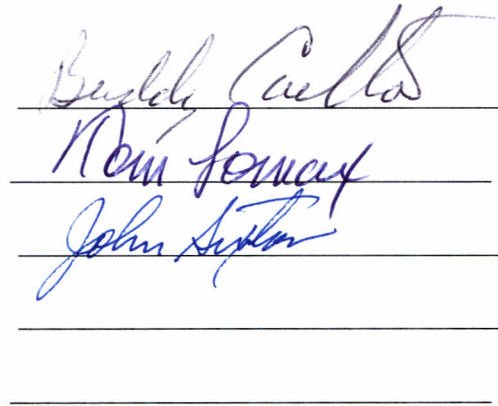 Buddy Carlton
Tom Lomax
John Sexton